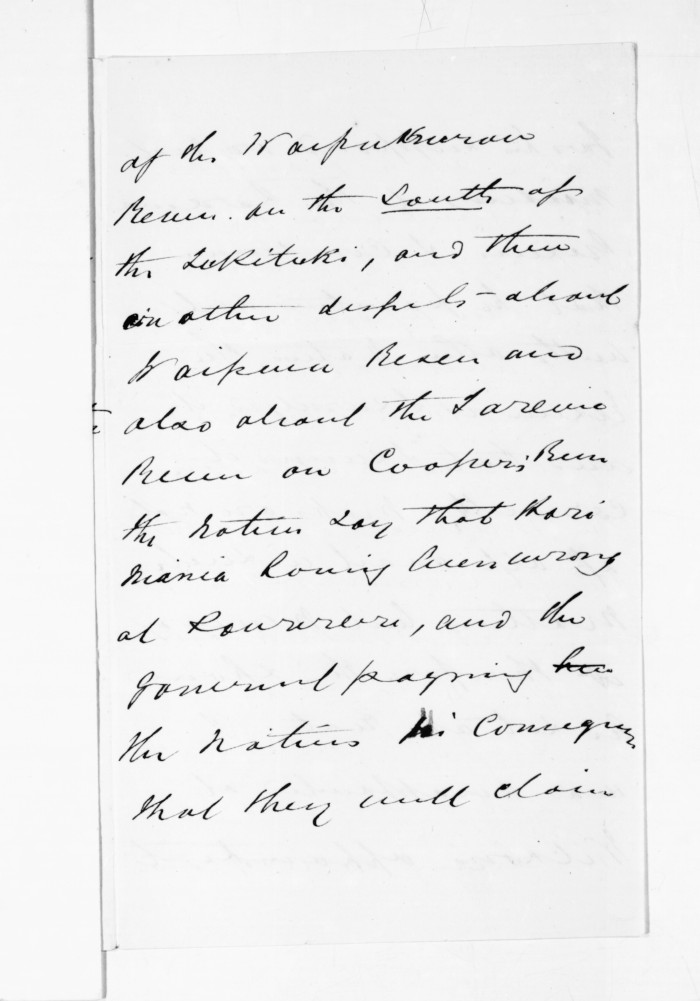 of the Waipukurau
Reserve on the South of
the Tukituki, and then
another dispute about
Waipawa Reserve and
also about the
Reserve on Coopers Run
the Natives say that Kari
being wrong
at, and the
Government paying
the Natives in consequence
that they will claim